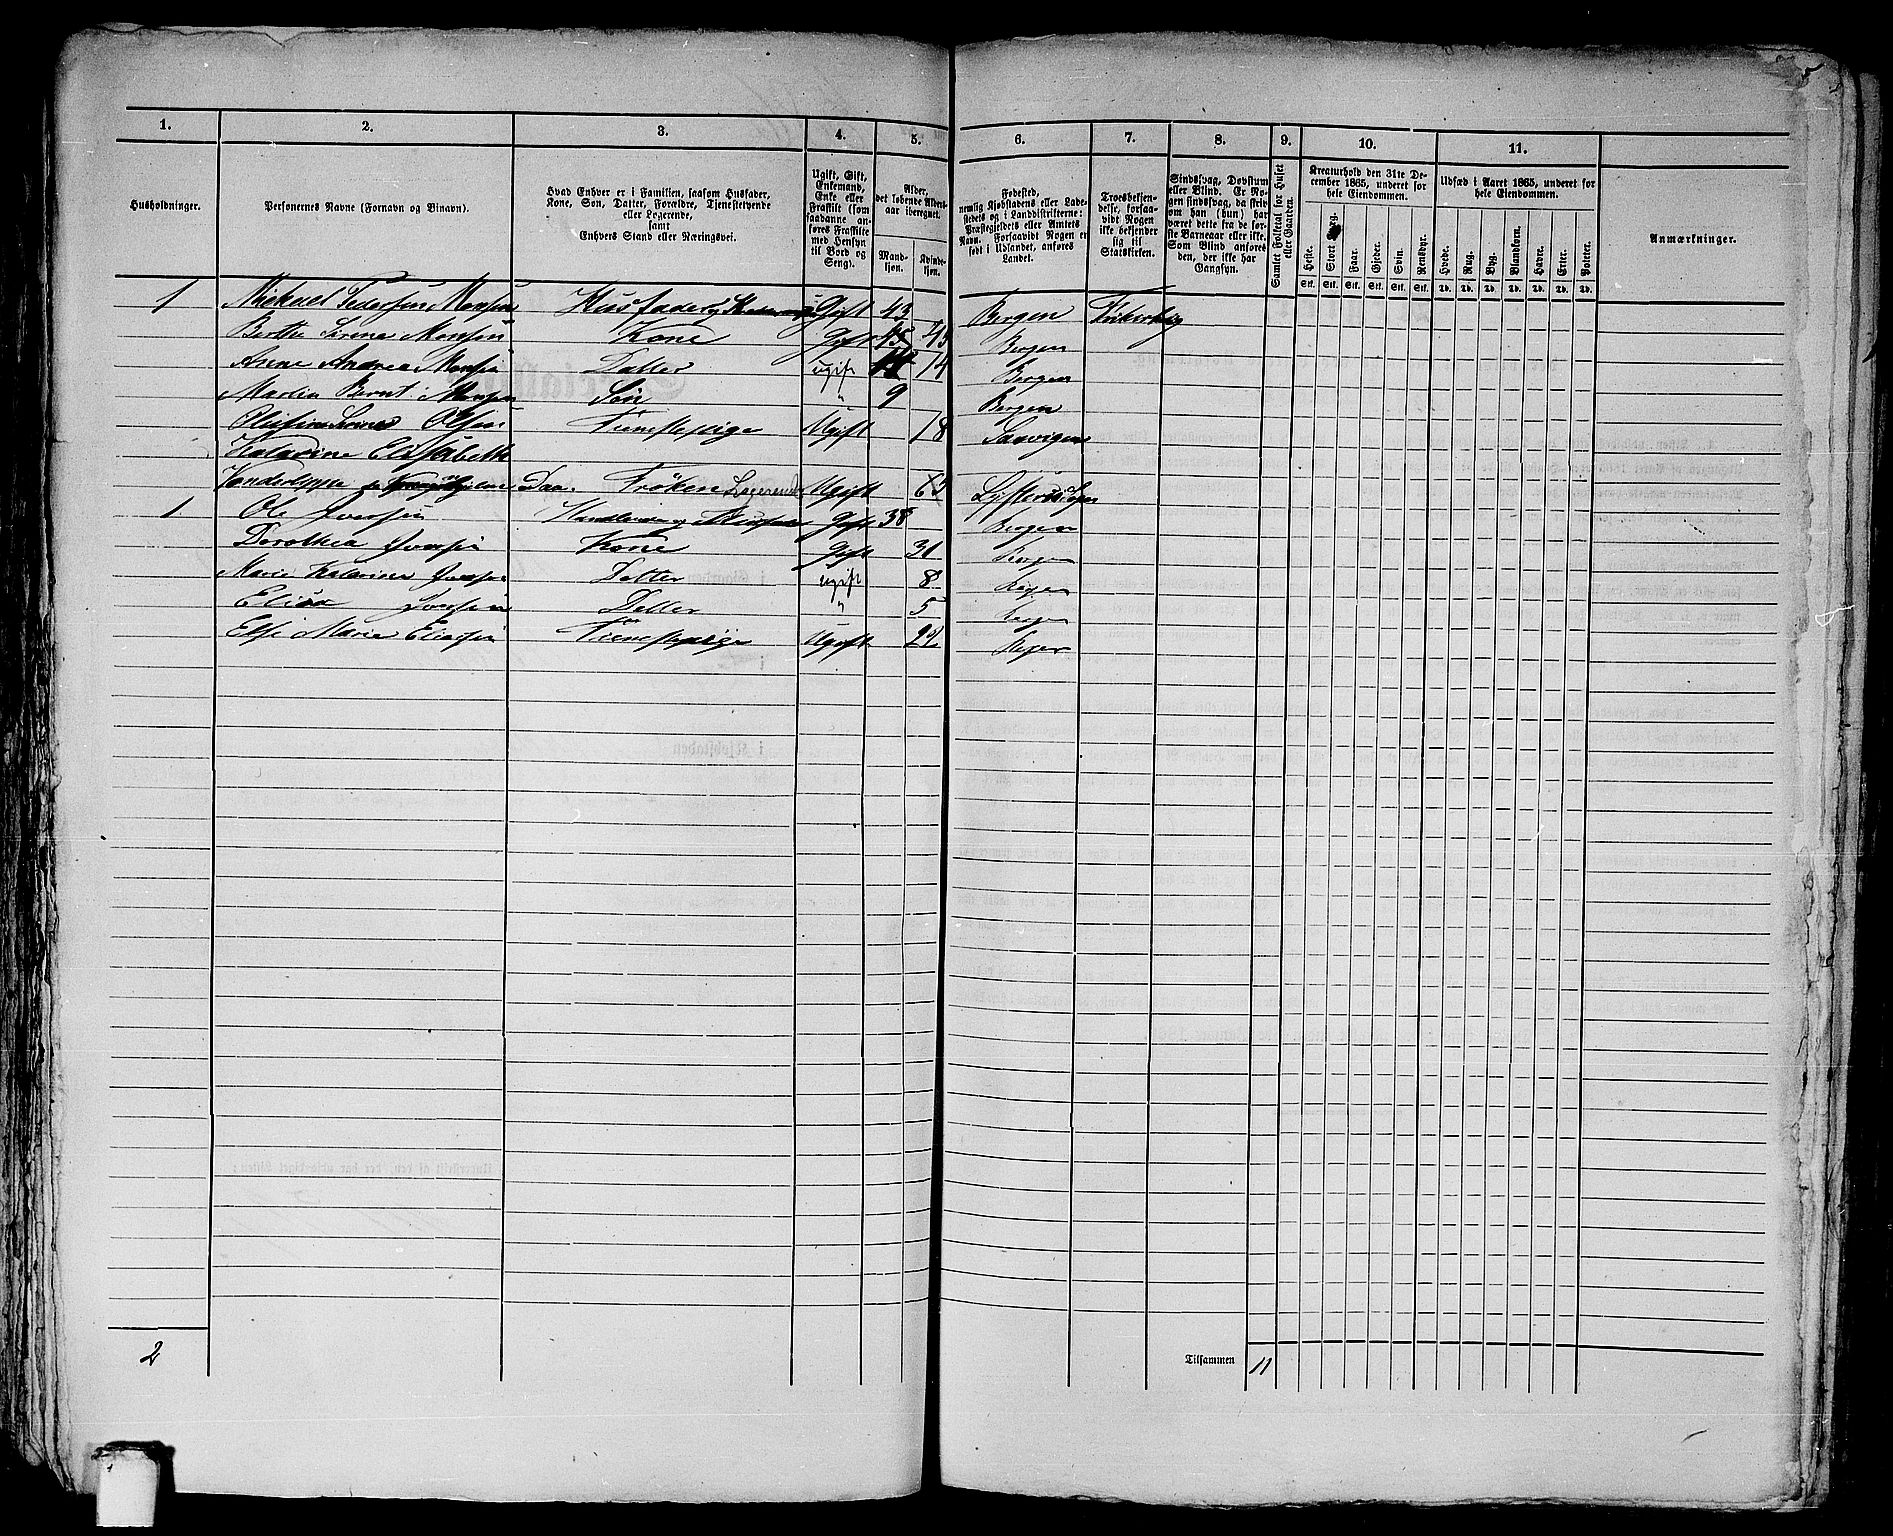 1. 2. 3. 4. 5. 6. 7. 8. 9. 10. 11.
Husholdninger.
Personernes Navne (Fornavn og Binavn).
Hvad Enhver er i Familien, saasom Husfader,
Kone, Søn, Datter, Forældre, Tjenestetyende
eller Logerende,
samt
Enhvers Stand eller Næringsvei.
Ugift, Gift,
Enkemand,
Enke eller
Fraskilt (som
saadanne an-
føres Fraskilte
med Hensyn
til Bord og
Seng).
Alder,
det løbende Alders-
aar iberegnet.
Mand-
kjøn.
Kvinde-
kjøn.
Fødested,
nemlig Kjøbstadens eller Lade-
stedets og i Landdistrikterne:
Præstegjeldets eller Amtets
Navn. Forsaavidt Nogen er
født i Udlandet, anføres
Landet.
Troesbekjen-
delse, forsaa-
vidt Nogen
ikke bekjender
sig til
Statskirken.
Sindssvag, Døvstum
eller Blind. Er No-
gen sindssvag, da skriv
om han (hun) har
været dette fra de før-
ste Barneaar eller ikke.
Som Blind anføres
den, der ikke har
Gangsyn.
Samlet Folketal for Huset
eller Gaarden.
Kreaturhold den 31te De-
cember 1865, underet for
hele Eiendommen.
Heste. Stort Kvæg. Faar. Gjeder. Svin. Rensdyr.
Stk. Stk. Stk. Stk. Stk. Stk.
Udsæd i Aaret 1865, underet for
hele Eiendommen.
Hvede. Rug. Byg. Blandkorn. Havre. Erter. Poteter.
Td. Td. Td. Td. Td. Td. Td.
Anmærkninger.
1 Mickael Pedersen Monsen Husfader Gift 43 Bergen Frikirkelig
Berthe Serine Monsen Kone Gift 45 Bergen
Anne Andrea Monsen Datter ugift 14 Bergen
Martin Bernt Monsen Søn " 9 Bergen
Olsen Tienestepige Ugift 18
Katarine Elisabeth
Vonderlippe Frøken Logerende Ugift
1 Ole Iversen Gift 38 Bergen
Dorothea Iversen Kone Gift 31 Bergen
Marie Katarine Iversen Datter ugift 8 Bergen
Elisa Iversen Datter " 5 Bergen
Else Marie Eliesen Tienestepige Ugift
2
Tilsammen 11